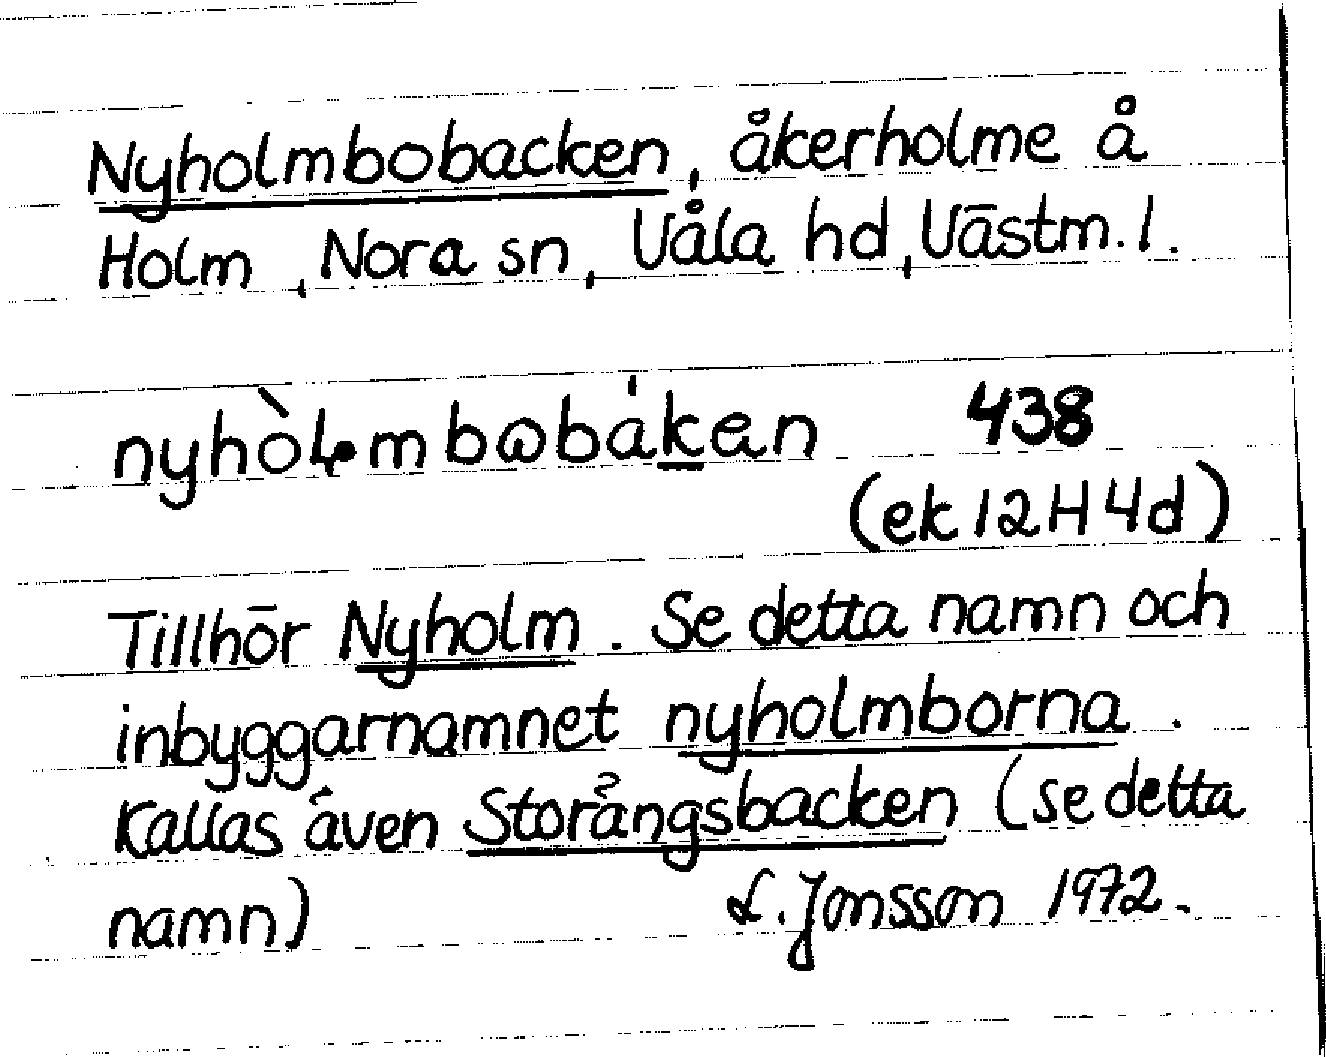 Nyholmbobacken, åkerholme å
Holm, Nora sn, Våla hd, Västm. l.
nyhòlmbωbáken 438
(ek 12H4d)
Tillhör Nyholm. Se detta namn och
inbyggarnamnet nyholmborna.
Kallas även Storängsbacken (se detta
namn) L. Jonsson 1972.